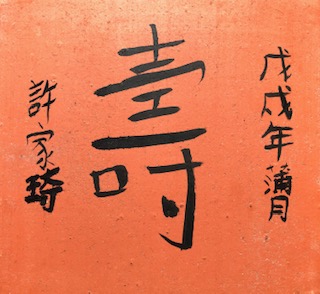 戊戌年蒲月
壽
許家琦